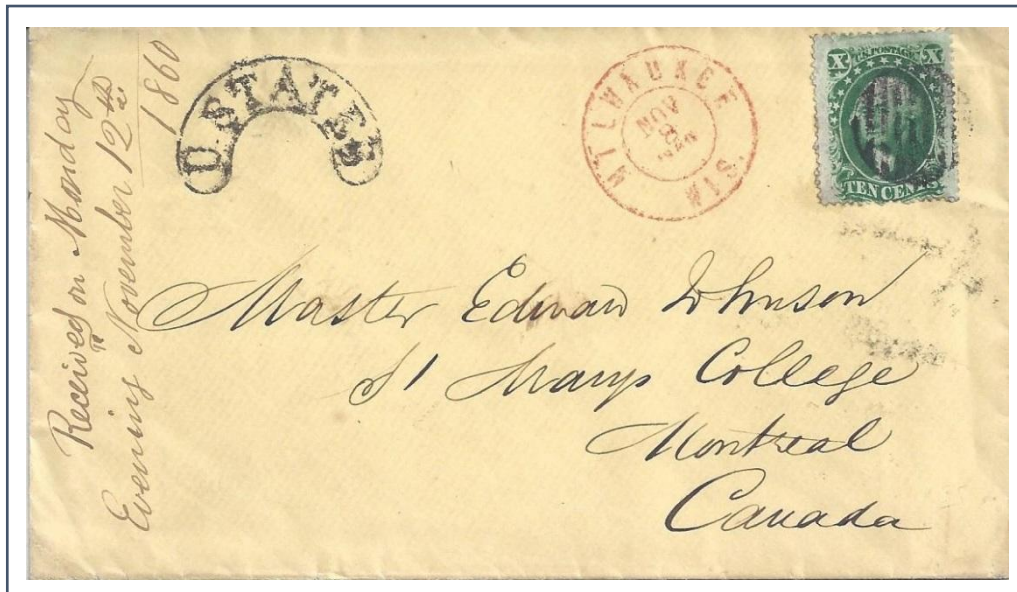 Received on Monday
Evening November 12th
1860
U. STATES
MILWAUKEE WIS.
NOV
8
X U.S. POSTAGE X
TEN CENTS
Master Edward Johnson
St Marys College
Montreal
Canada